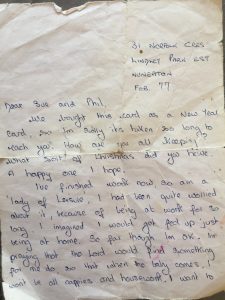 31 NORFOLK CRES
LINDLEY PARK EST
NUNEATON
FEB. 77
Dear Sue and Phil,
We bought this card as a New Year
card, so I'm sorry its taken so long to
reach you. How are you all keeping?
What sort of Christmas did you have.
A happy one I hope.
I've finished work now, so am a
lady of leisure. I had been quite worried
about it, because of being at work for so
long I imagined I would get fed up just
being at home. So far though I'm ok. I'm
praying that the Lord would find something
for me do so that when the baby comes, I
wont be all nappies and housework. I want to